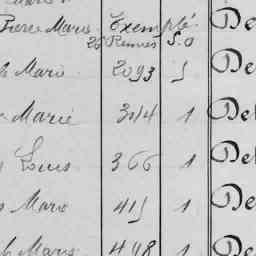 Pierre Marie Exempté De
26 Rennes S.O
Marie 2093 5 De
Marie 314 1 Del
Louis 366 1 Del
Marie 415 1 De
Marie 498 1 De